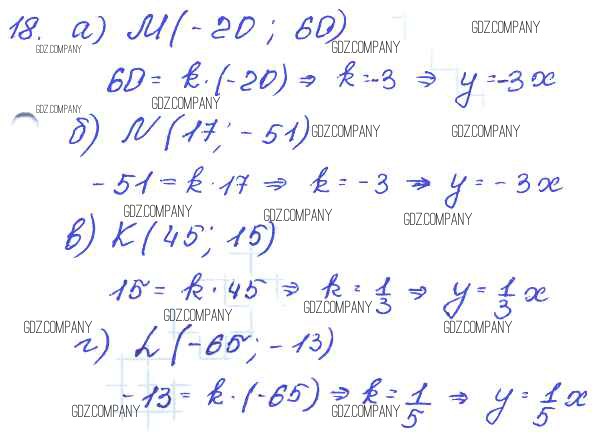 18. а) M(-20; 60)
60 = k·(-20) ⇒ k = -3 ⇒ y = -3x
б) N(17; -51)
-51 = k·17 ⇒ k = -3 ⇒ y = -3x
в) K(45; 15)
15 = k·45 ⇒ k = 1/3 ⇒ y = 1/3 x
г) L(-65; -13)
-13 = k·(-65) ⇒ k = 1/5 ⇒ y = 1/5 x
GDZ.COMPANY GDZ.COMPANY GDZ.COMPANY
GDZ.COMPANY
GDZ.COMPANY GDZ.COMPANY GDZ.COMPANY
GDZ.COMPANY GDZ.COMPANY GDZ.COMPANY
GDZ.COMPANY GDZ.COMPANY
GDZ.COMPANY GDZ.COMPANY
GDZ.COMPANY GDZ.COMPANY